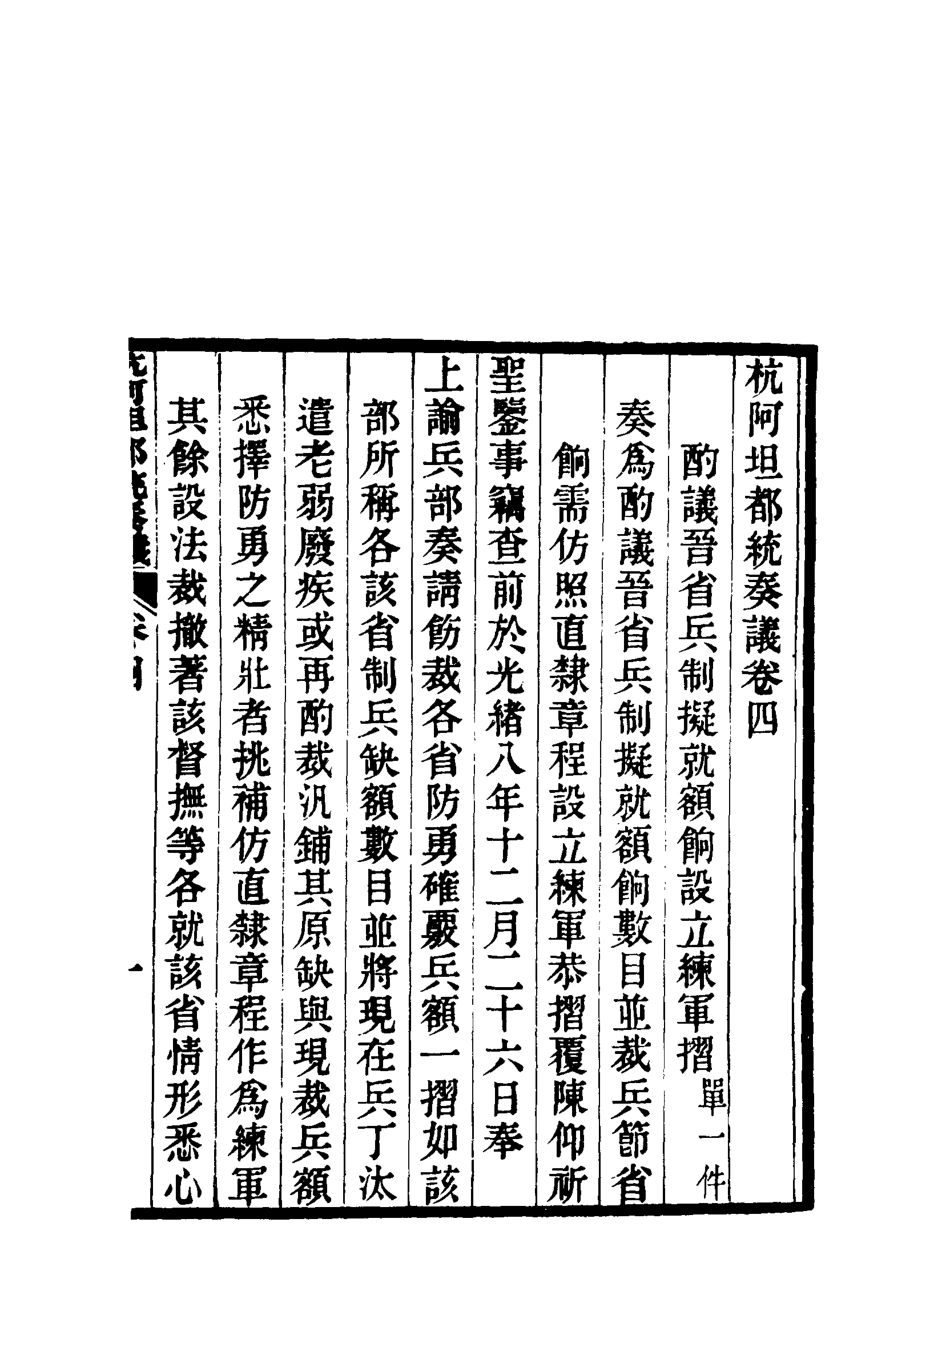 杭阿坦都統奏議卷四
酌議晉省兵制擬就額餉設立練軍摺單一件
奏爲酌議晉省兵制擬就額餉數目並裁兵節省
餉需仿照直隸章程設立練軍恭摺覆陳仰祈
聖鑒事竊查前於光緒八年十二月二十六日奉
上諭兵部奏請飭裁各省防勇確覈兵額一摺如該
部所稱各該省制兵缺額數目並將現在兵丁汰
遣老弱廢疾或再酌裁汛鋪其原缺與現裁兵額
悉擇防勇之精壯者挑補仿直隸章程作爲練軍
其餘設法裁撤著該督撫等各就該省情形悉心
杭阿坦都統奏議 卷四 一